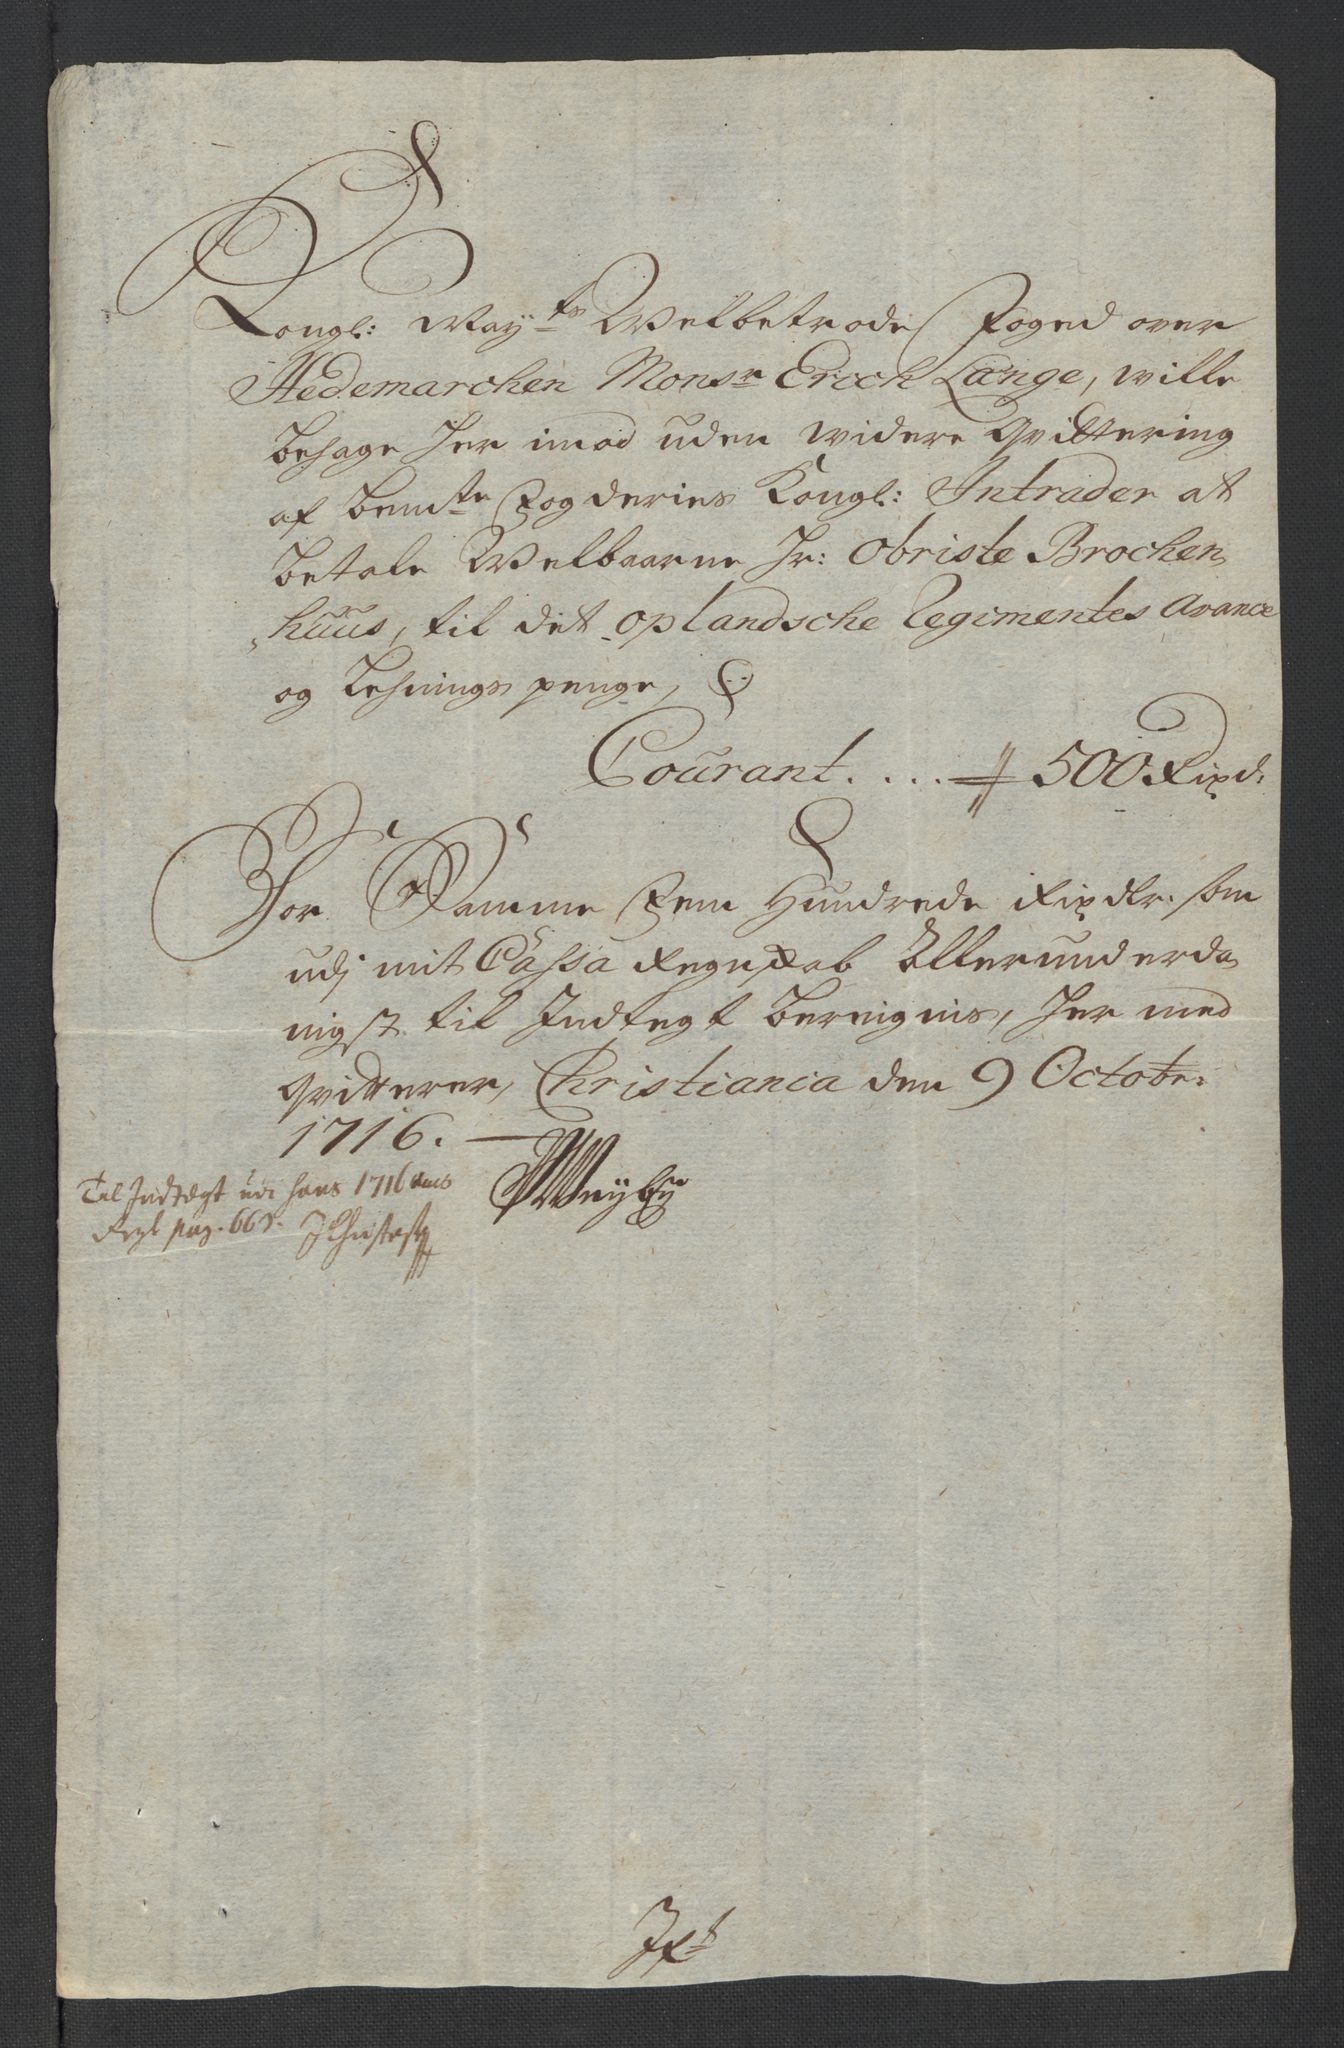 Kongl: May:ts Welbetrode Foged over
Hedemarchen Monsr Erich Lange, wille
behage her imod uden widere Qvittering
af bemte Fogderies Kongl: Intrader at
betale Welbaarne Hr: Obriste Brochen
huus, til det oplandsche Regimentes Avance
og Lehnings penge,
Courant.... 500 Rixd:
For Samme Fem Hundrede Rixdlr. som
udj mit Cassa Regnskab Allerunderda
nigst til Indtegt beregnis, her med
Qvitterer, Christiania den 9 Octobr:
1716.
Til Indtægt udi hans 1716 aars
Regl pag. 669.